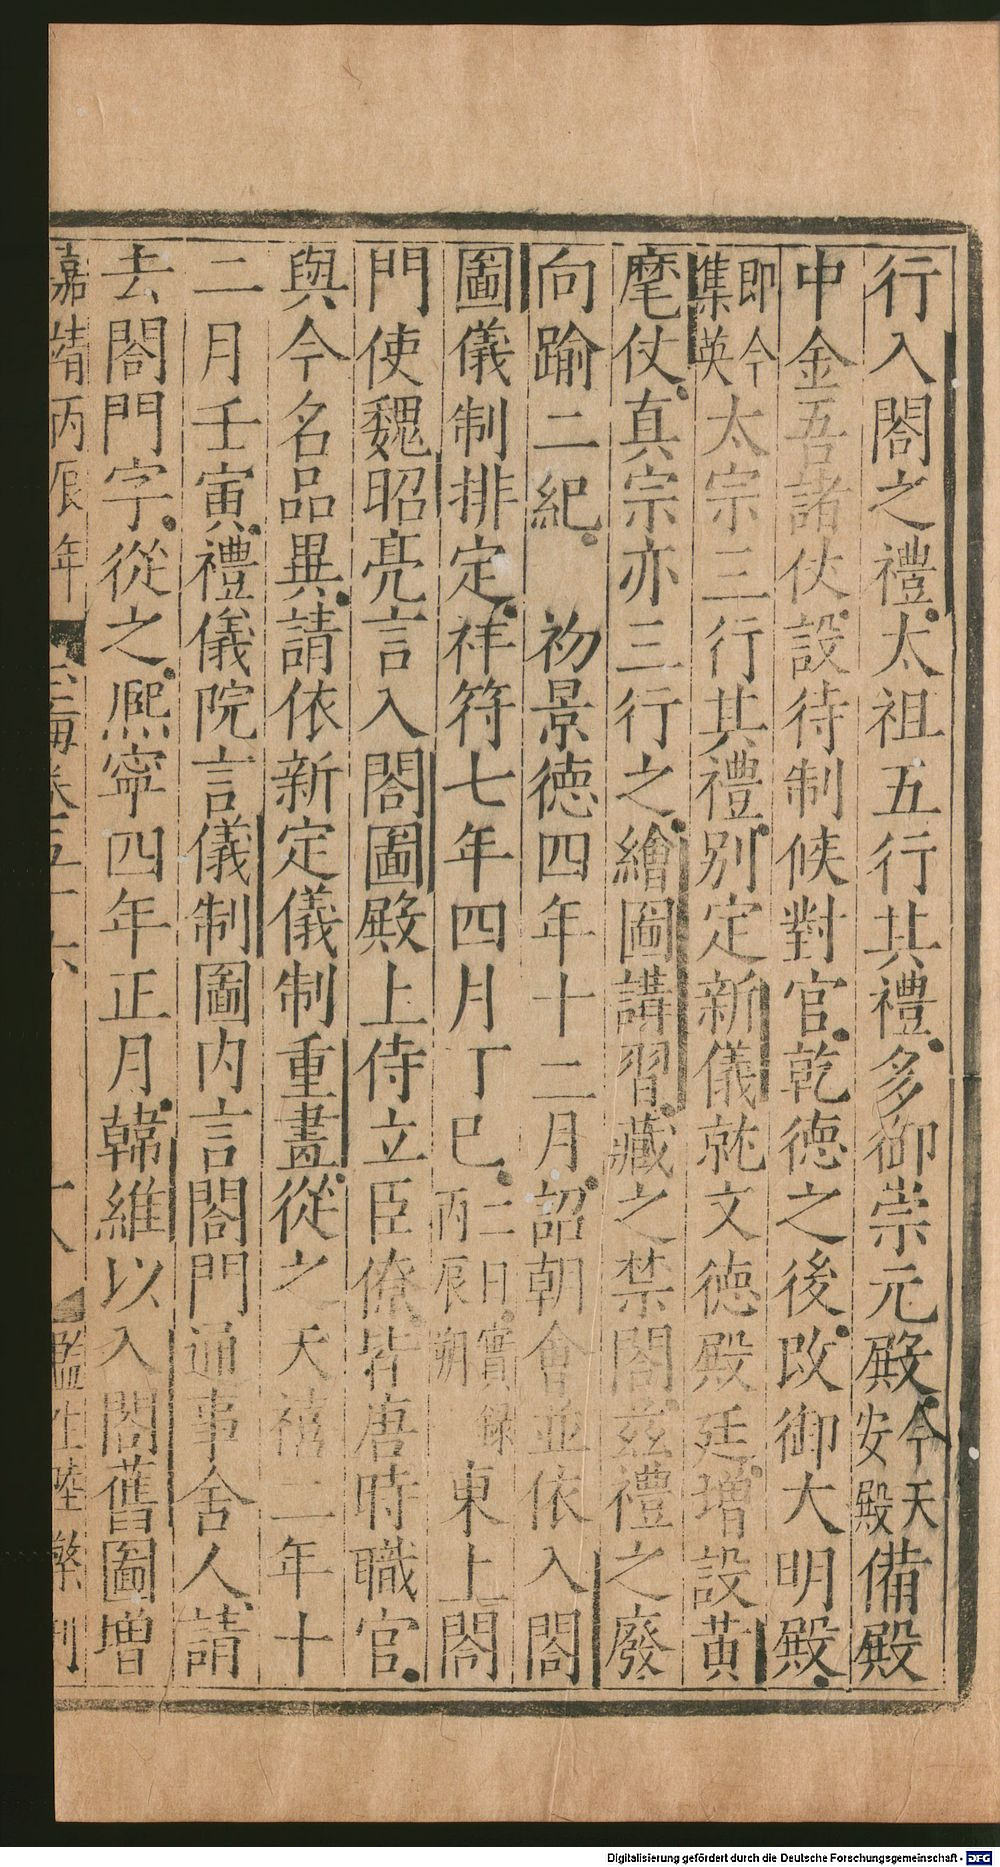 行入閤之禮太祖五行其禮多御崇元殿今天安殿備殿
中金吾諸仗設待制候對官乾德之後改御大明殿
即今集英太宗三行其禮别定新儀就文德殿廷增設黄
麾仗真宗亦三行之繪圖講習藏之禁閤兹禮之廢
向踰二紀 初景德四年十二月詔朝會並依入閤
圖儀制排定祥符七年四月丁巳二日實録丙辰朔東上閤
門使魏昭亮言入閤圖殿上侍立臣僚皆唐時職官
與今名品異請依新定儀制重畫從之天禧二年十
二月壬寅禮儀院言儀制圖内言閤門通事舍人請
去閤門字從之熈寧四年正月韓維以入閤舊圖增
嘉靖丙辰年 玉海卷五十六 十八 監生陸檄刊
Digitalisierung gefördert durch die Deutsche Forschungsgemeinschaft - DFG